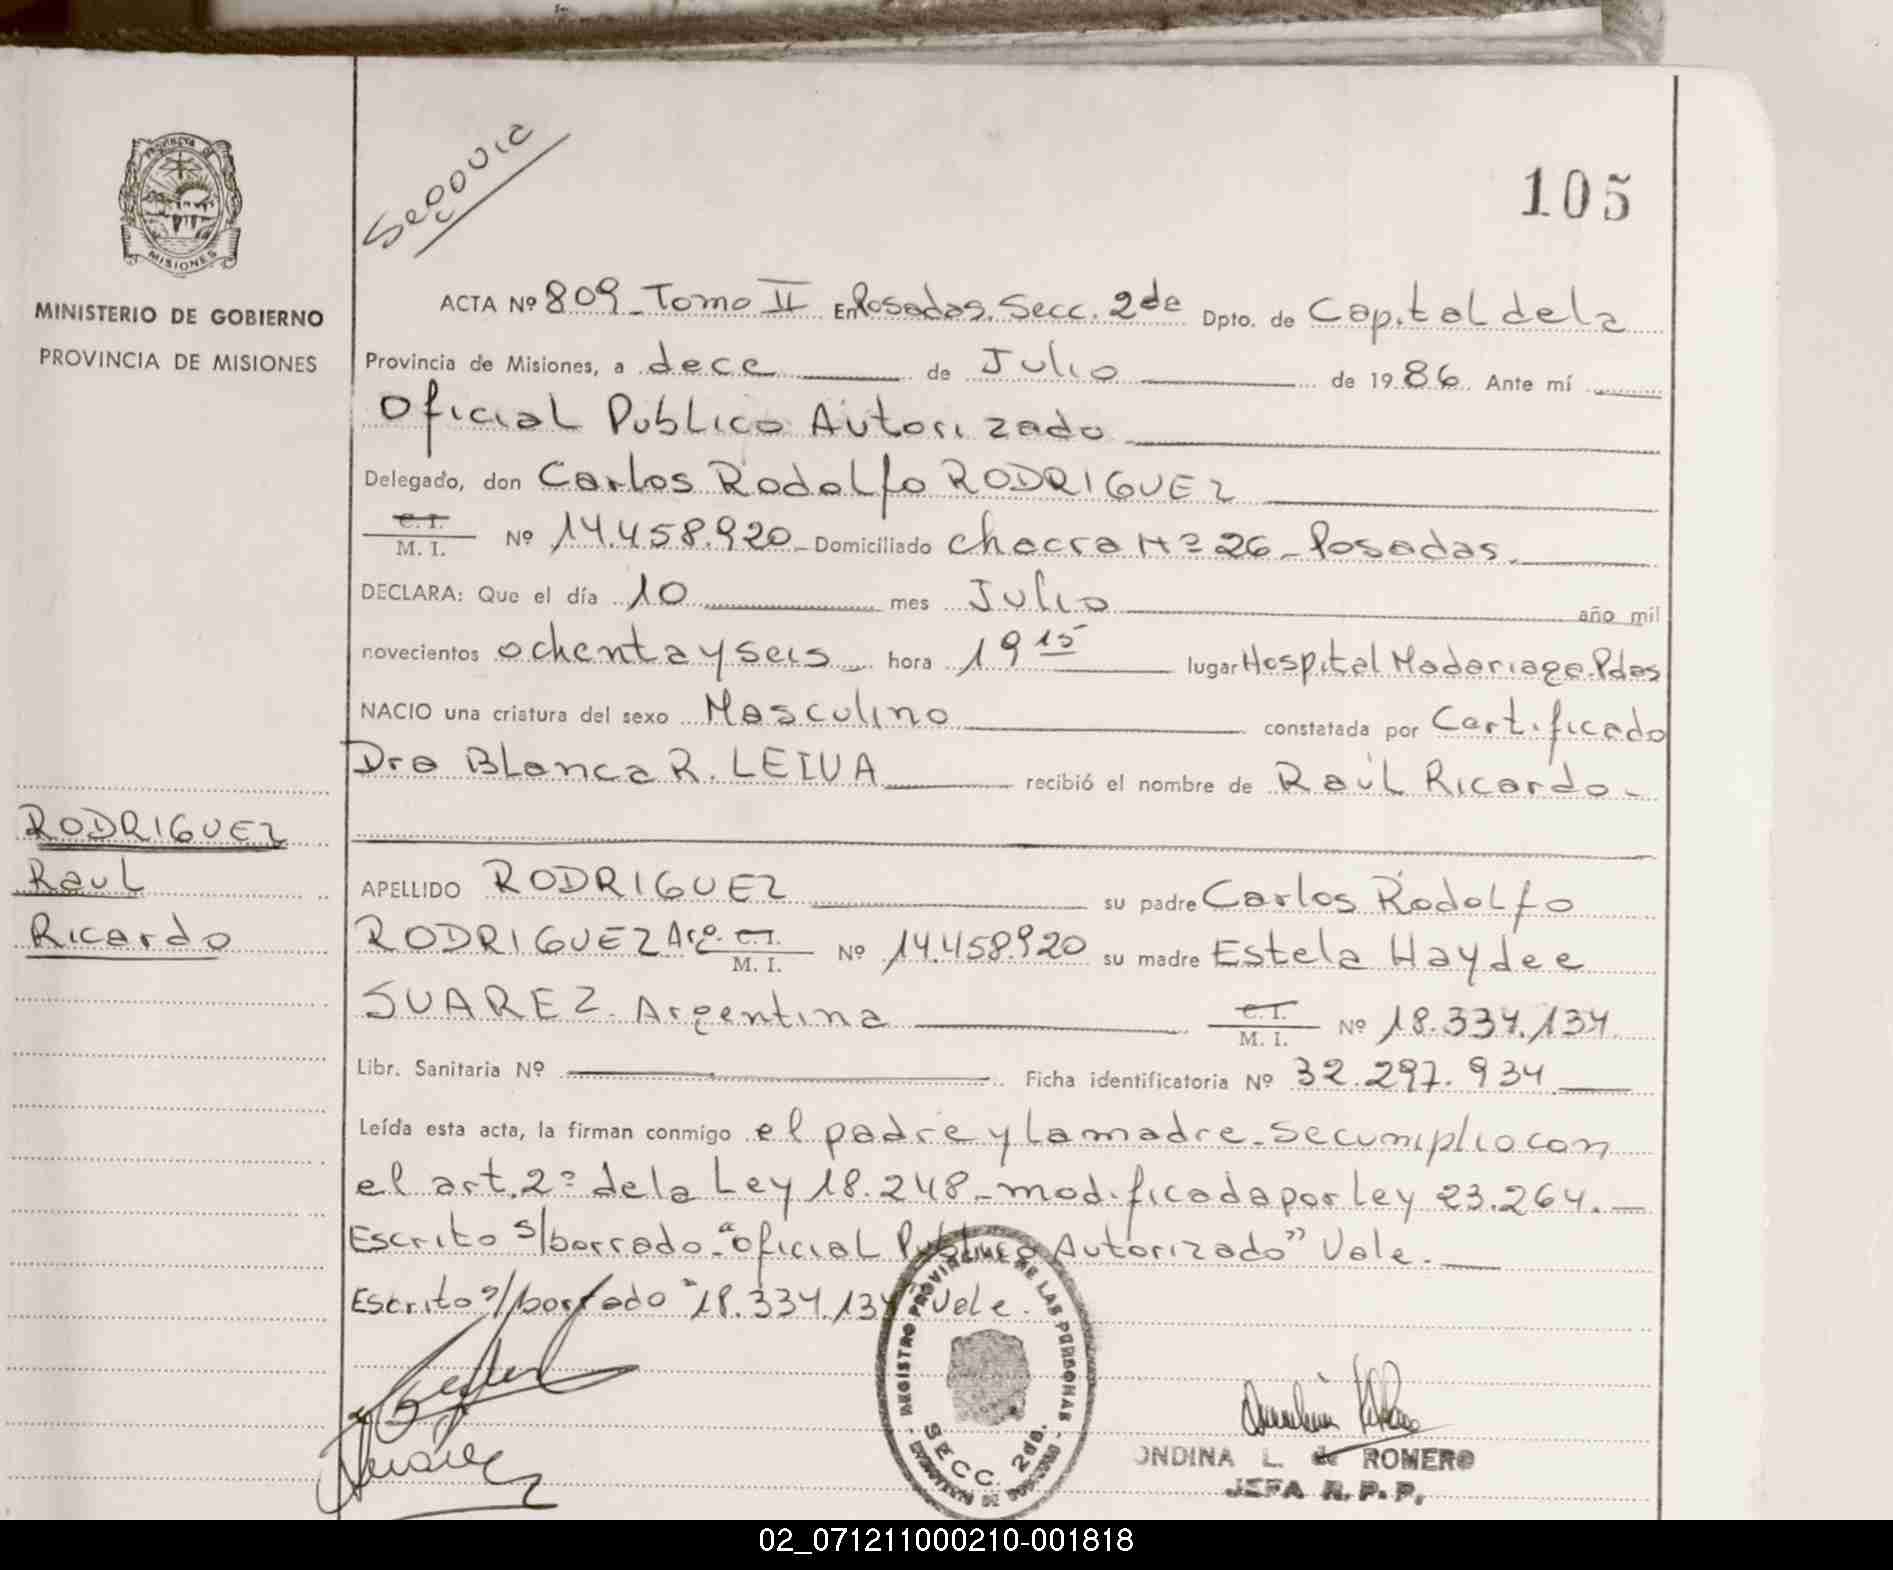 PROVINCIA DE
MISIONES
MINISTERIO DE GOBIERNO
PROVINCIA DE MISIONES
RODRIGUEZ
Raul
Ricardo
Segovia
105
ACTA Nº 809_Tomo II En Posadas. Secc. 2da Dpto. de Capital de la
Provincia de Misiones, a doce de Julio de 1986. Ante mí
Oficial Publico Autorizado
Delegado, don Carlos Rodolfo RODRIGUEZ
C. I.
M. I. Nº 14.458.920_ Domiciliado Chacra Nº 26_Posadas.
DECLARA: Que el día 10 mes Julio año mil
novecientos ochenta y seis hora 19 15 lugar Hospital Madariaga. Pdas
NACIO una criatura del sexo Masculino constatada por Certificado
Dra Blanca R. LEIVA recibió el nombre de Raúl Ricardo.
APELLIDO RODRIGUEZ su padre Carlos Rodolfo
RODRIGUEZ Arg. C. I. M. I. Nº 14.458.920 su madre Estela Haydee
SUAREZ. Argentina C. I. M. I. Nº 18.334.134.
Libr. Sanitaria Nº Ficha identificatoria Nº 32.297.934
Leída esta acta, la firman conmigo el padre y la madre. Se cumplio con
el art. 2º de la Ley 18.248_modificada por Ley 23.264.
Escrito s/borrado "oficial Publico Autorizado" Vale.
Escrito s/borrado "18.334.134" Vale.
REGISTRO PROVINCIAL DE LAS PERSONAS
SECC. 2da.
Suárez
ONDINA L. de ROMERO
JEFA R. P. P.
02_071211000210-001818